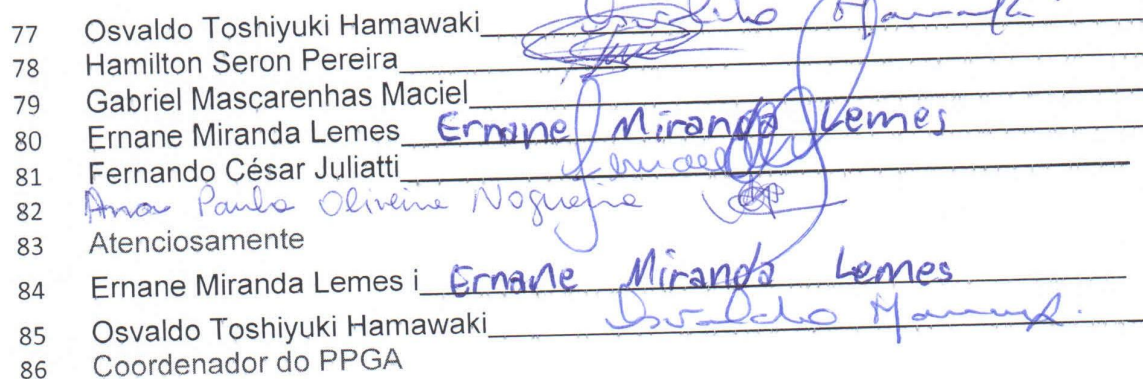 77 Osvaldo Toshiyuki Hamawaki
78 Hamilton Seron Pereira
79 Gabriel Mascarenhas Maciel
80 Ernane Miranda Lemes Ernane Miranda Lemes
81 Fernando César Juliatti
82 Ana Paula Oliveira Nogueira
83 Atenciosamente
84 Ernane Miranda Lemes i Ernane Miranda Lemes
85 Osvaldo Toshiyuki Hamawaki Osvaldo
86 Coordenador do PPGA